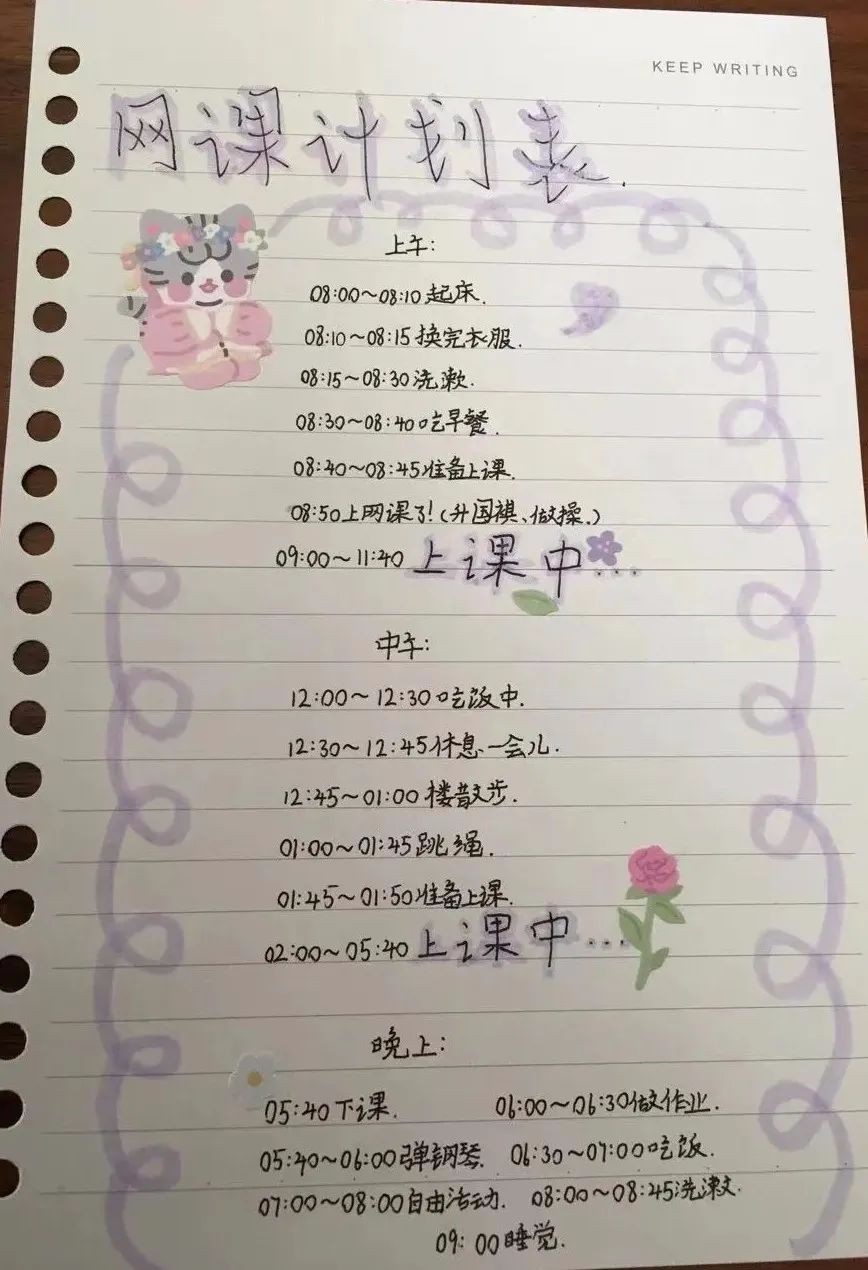 KEEP WRITING
网课计划表.
上午:
08:00~08:10起床.
08:10~08:15换完衣服.
08:15~08:30洗漱.
08:30~08:40吃早餐.
08:40~08:45准备上课.
08:50上网课了!(升国祺、做操.)
09:00~11:40上课中...
中午:
12:00~12:30吃饭中.
12:30~12:45休息一会儿.
12:45~01:00楼散步.
01:00~01:45跳绳.
01:45~01:50准备上课.
02:00~05:40上课中...
晚上:
05:40下课. 06:00~06:30做作业.
05:40~06:00弹钢琴. 06:30~07:00吃饭.
07:00~08:00自由活动. 08:00~08:45洗漱.
09:00睡觉.